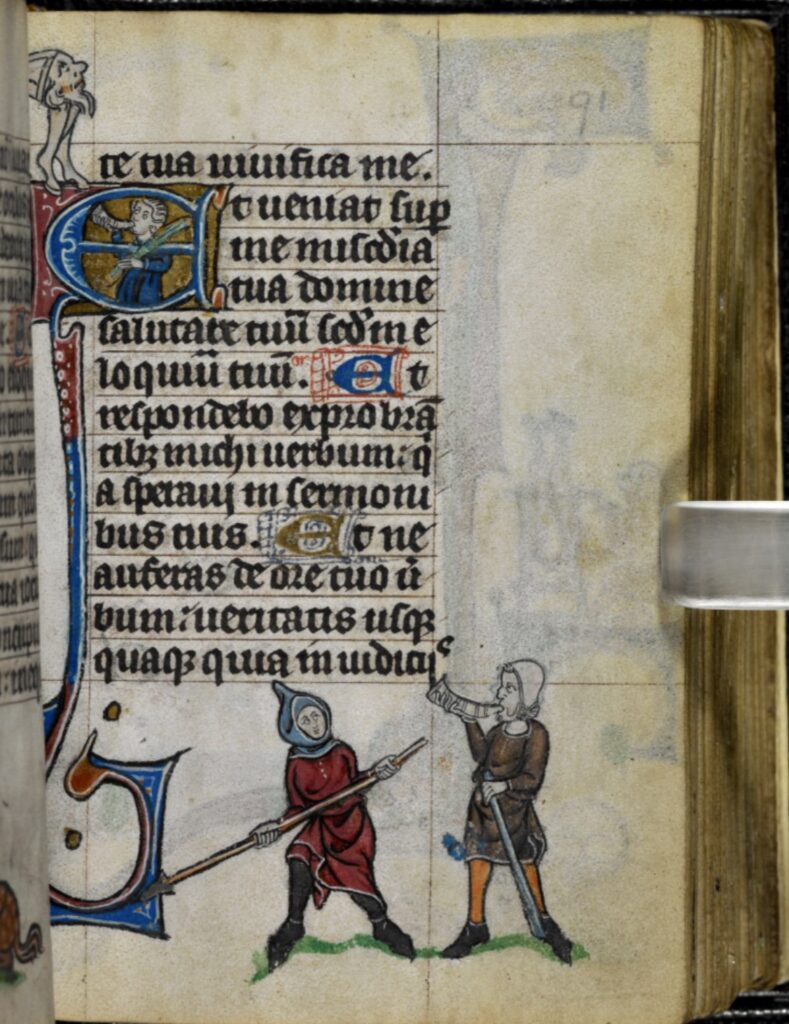 91
te tua uiuifica me.
Et ueniat sup
me miscdia
tua domine
salutare tuū scdm e
loquiū tuū. Et
respondebo exprobrā
tibꝫ michi uerbum: q
a speraui in sermoni
bus tuis. Et ne
auferas de ore tuo ū
bum: ueritatis usqꝫ
quaqꝫ quia in iudicii